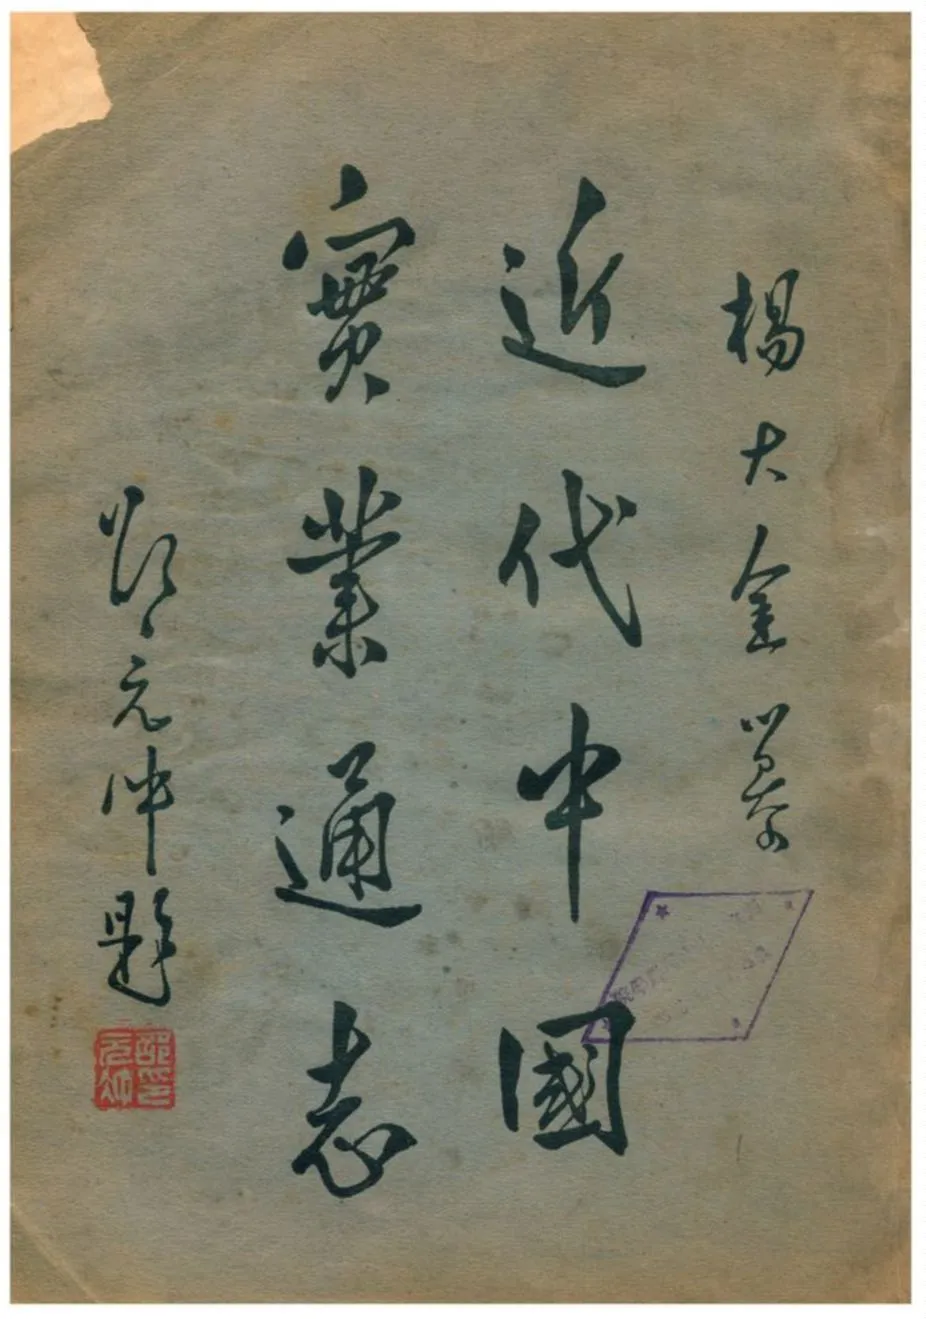 楊大金纂
近代中國
實業通志
邵元冲題